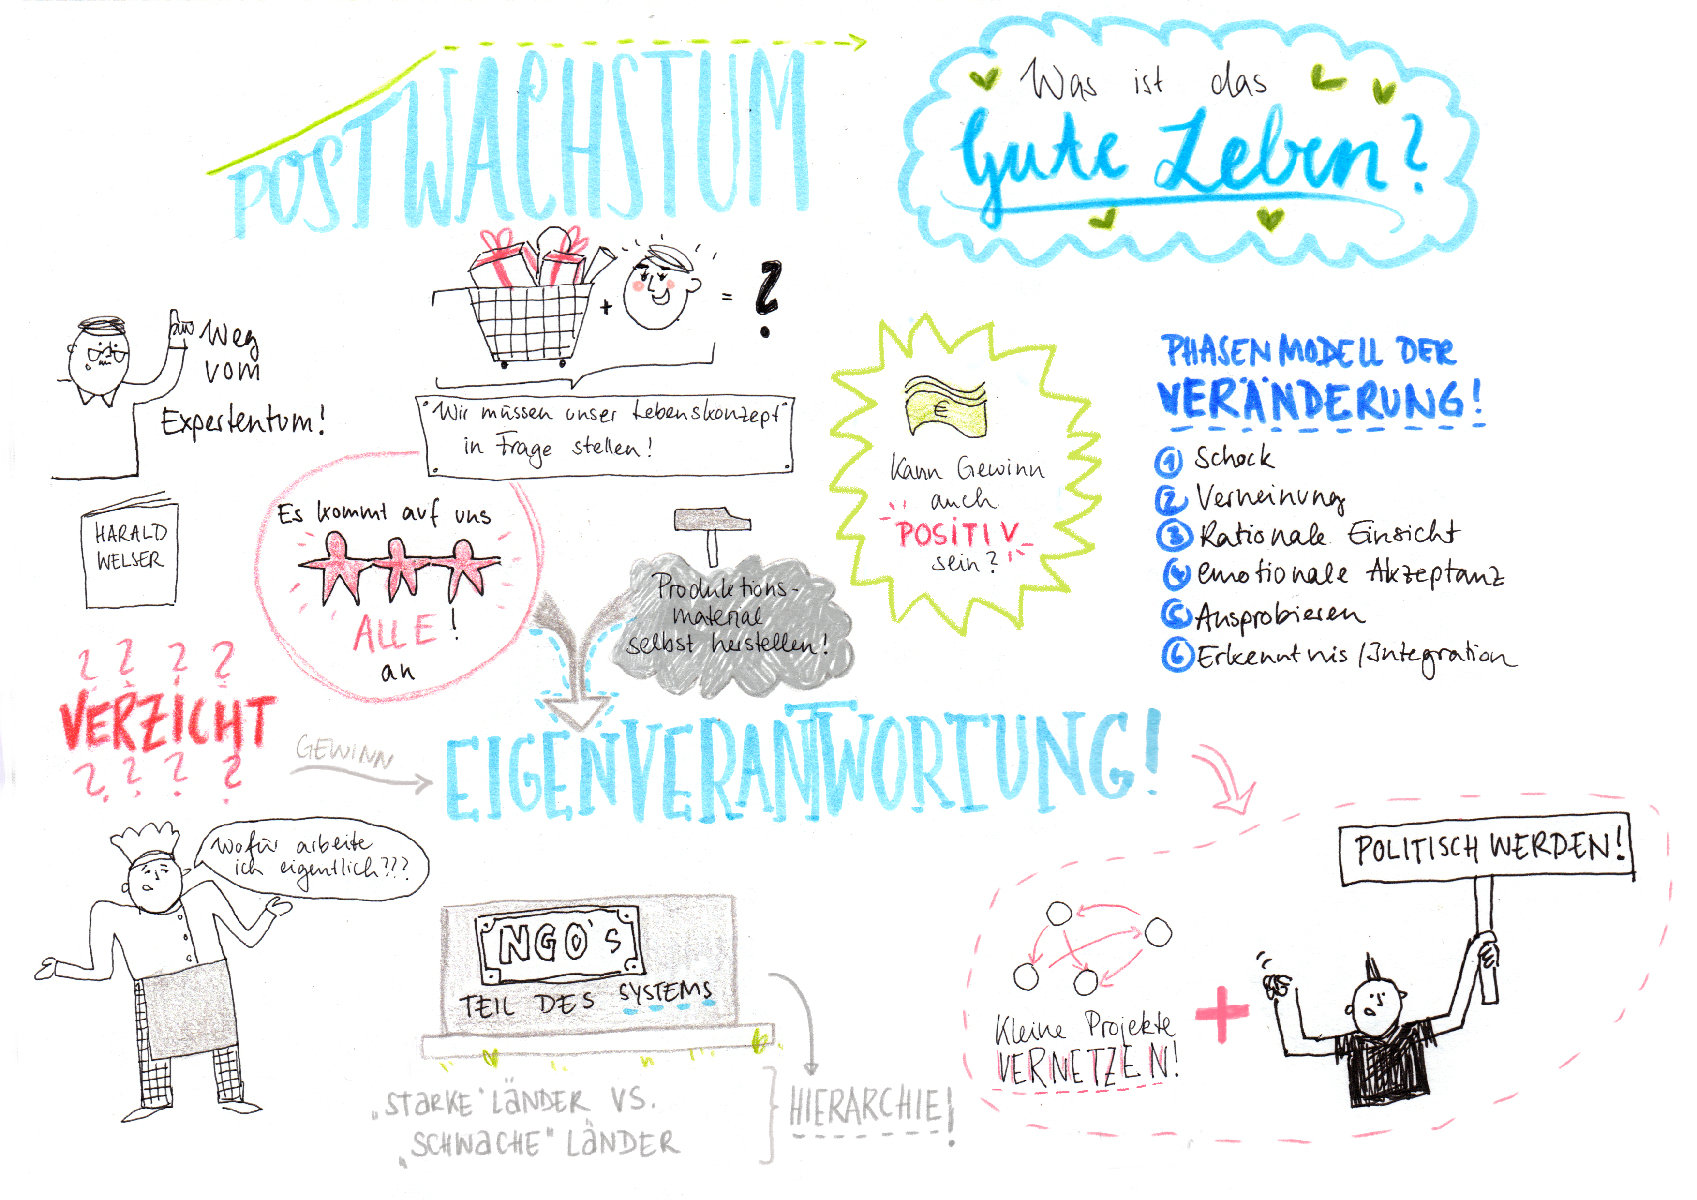 POSTWACHSTUM
Was ist das
Gute Leben?
+ = ?
Weg
vom
Expertentum!
"Wir müssen unser Lebenskonzept"
in Frage stellen!
HARALD
WELSER
Es kommt auf uns
ALLE!
an
Produktions-
material
selbst herstellen!
€
Kann Gewinn
auch
POSITIV
sein?
PHASENMODELL DER
VERÄNDERUNG!
1 Schock
2 Verneinung
3 Rationale Einsicht
4 emotionale Akzeptanz
5 Ausprobieren
6 Erkenntnis/Integration
? ? ? ?
VERZICHT
? ? ? ?
GEWINN
EIGENVERANTWORTUNG!
Wofür arbeite
ich eigentlich???
NGO's
TEIL DES SYSTEMS
„STARKE" LÄNDER VS.
„SCHWACHE" LÄNDER
HIERARCHIE!
Kleine Projekte
VERNETZEN!
+
POLITISCH WERDEN!